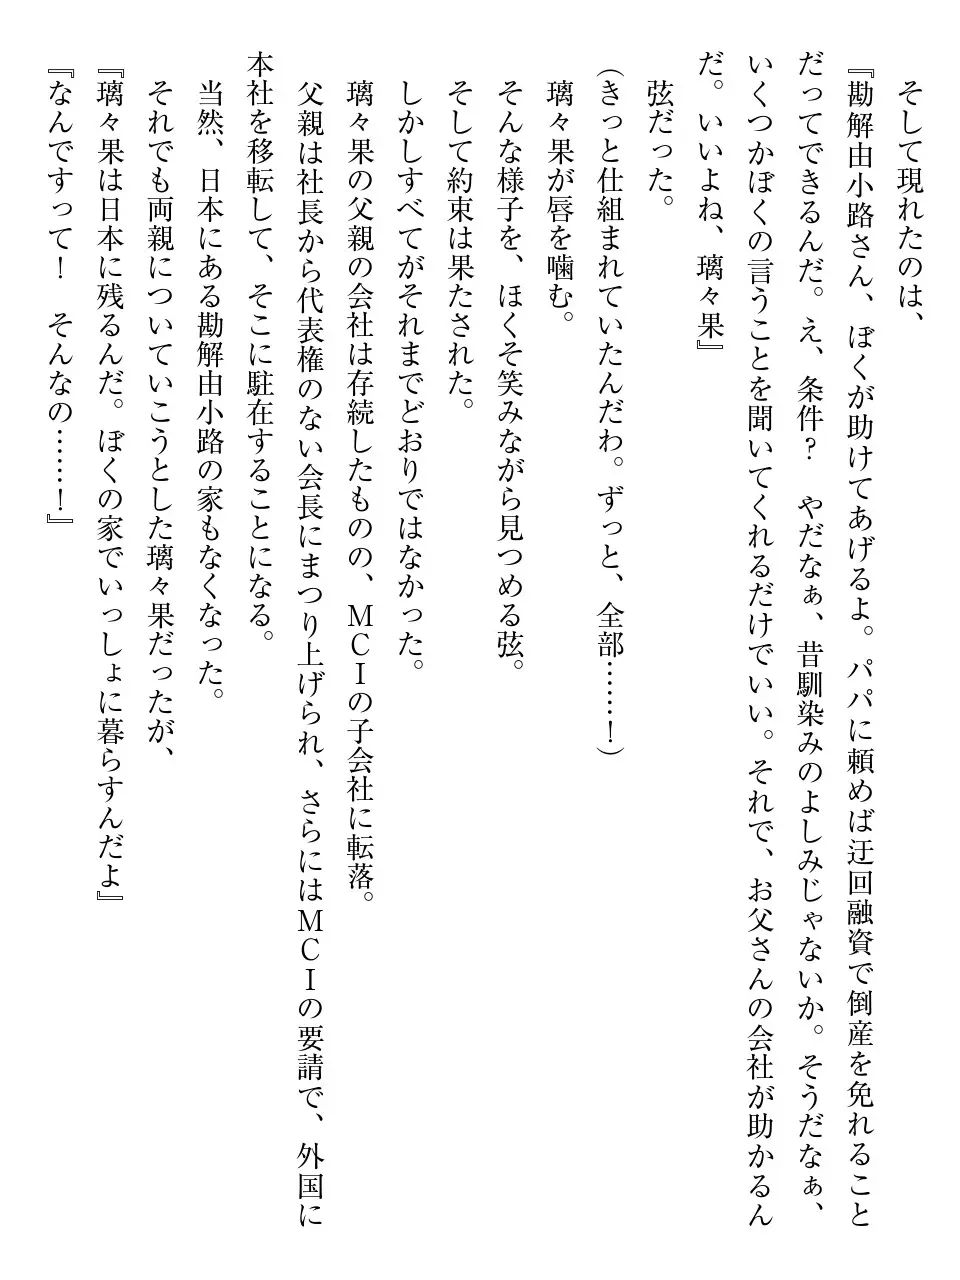 そして現れたのは、
『勘解由小路さん、ぼくが助けてあげるよ。パパに頼めば迂回融資で倒産を免れること
だってできるんだ。え、条件？　やだなぁ、昔馴染みのよしみじゃないか。そうだなぁ、
いくつかぼくの言うことを聞いてくれるだけでいい。それで、お父さんの会社が助かるん
だ。いいよね、璃々果』
　弦だった。
（きっと仕組まれていたんだわ。ずっと、全部……！）
　璃々果が唇を噛む。
　そんな様子を、ほくそ笑みながら見つめる弦。
　そして約束は果たされた。
　しかしすべてがそれまでどおりではなかった。
　璃々果の父親の会社は存続したものの、ＭＣＩの子会社に転落。
　父親は社長から代表権のない会長にまつり上げられ、さらにはＭＣＩの要請で、外国に
本社を移転して、そこに駐在することになる。
　当然、日本にある勘解由小路の家もなくなった。
　それでも両親についていこうとした璃々果だったが、
『璃々果は日本に残るんだ。ぼくの家でいっしょに暮らすんだよ』
『なんですって！　そんなの……！』